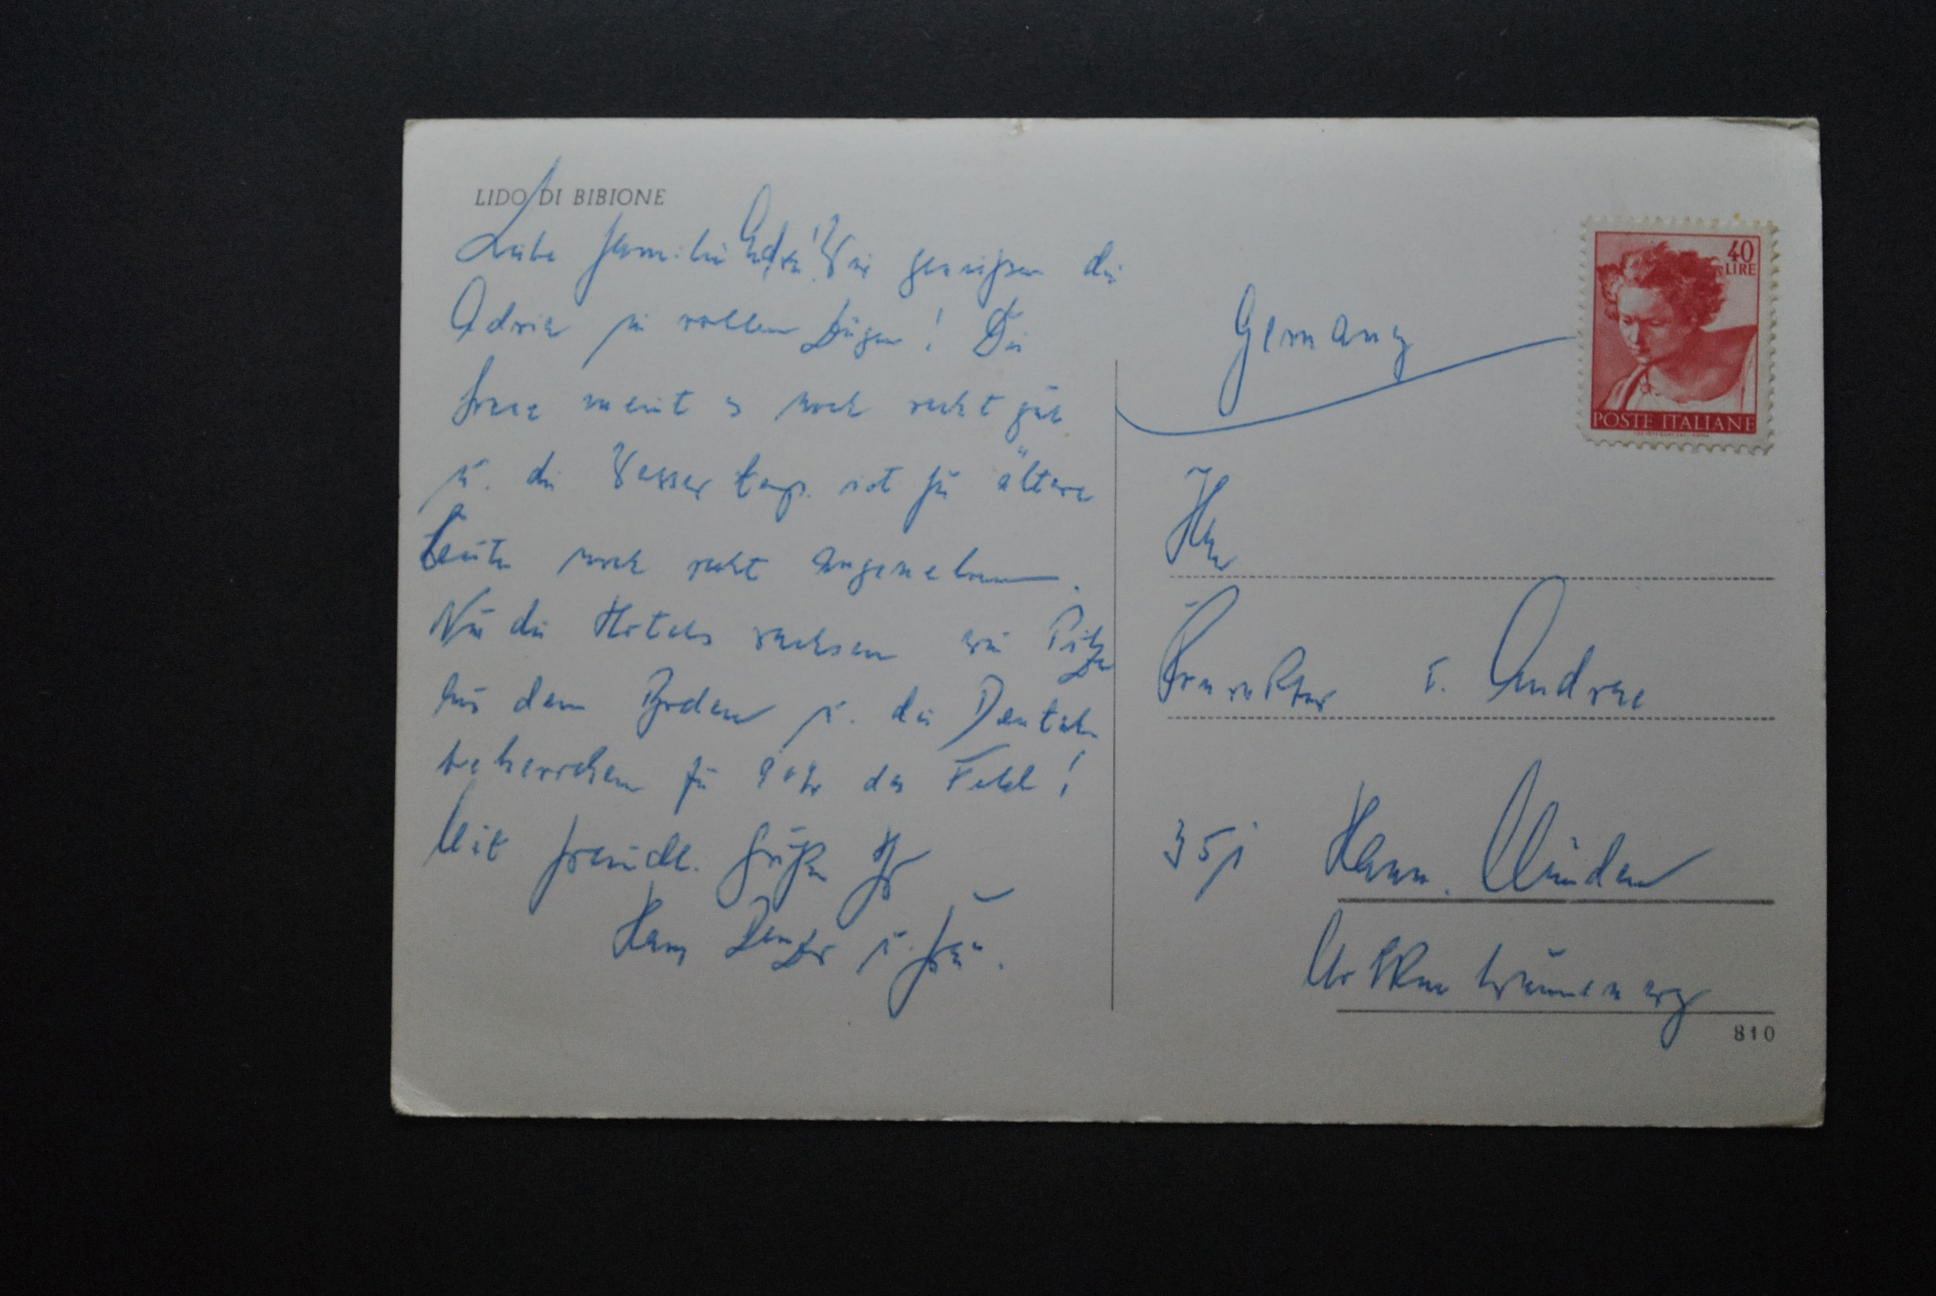 LIDO DI BIBIONE
Liebe Familie Andrae! Wir genießen die
Adria in vollen Zügen! Die
Sonne meint es noch recht gut
u. die Wasser temp. ist für ältere
Leute noch recht angenehm.
Nur die Hotels wachsen wie Pilze
aus dem Boden u. die Deutschen
beherrschen das Feld!
Mit freundl. Grüßen Ihr
Hans u. Frau.
Germany
40
LIRE
POSTE ITALIANE
Herrn
Andrae
351 Hann. Münden
810